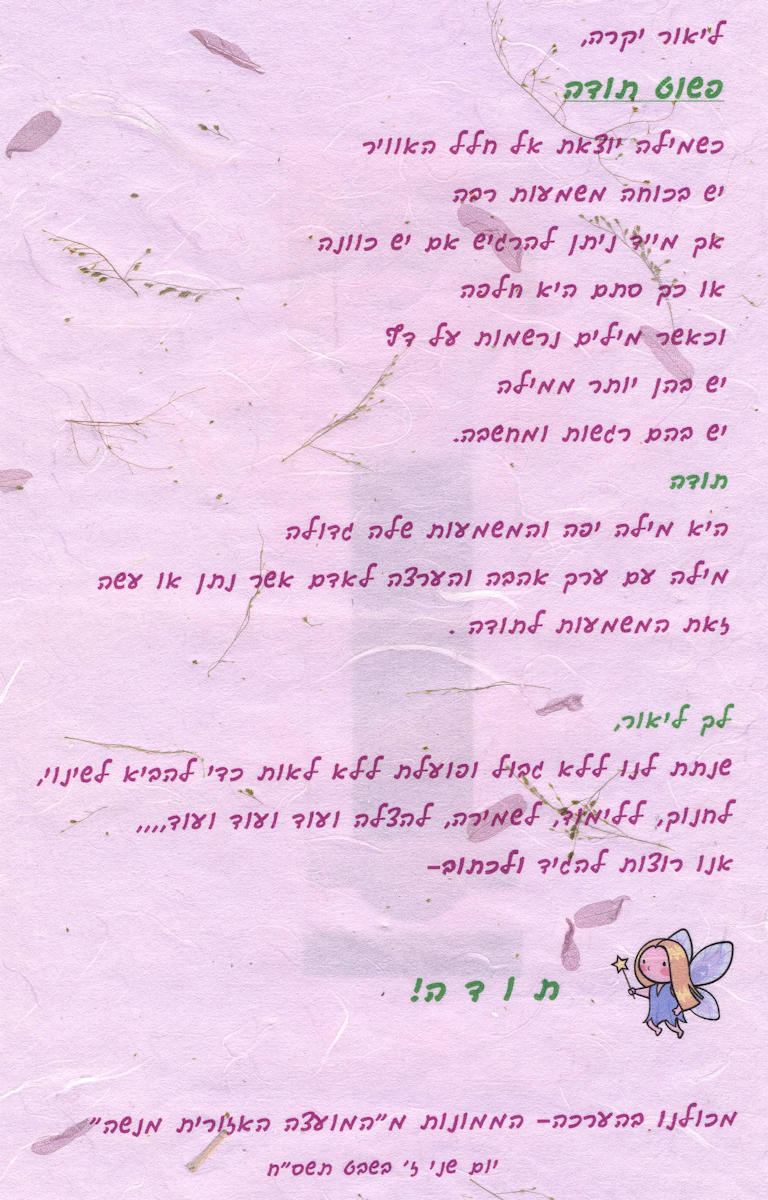 ליאור יקרה,
פשוט תודה
כשמילה יוצאת אל חלל האוויר
יש בכוחה משמעות רבה
אך מייד ניתן להרגיש אם יש כוונה
או כך סתם היא חלפה
וכאשר מילים נרשמות על דף
יש בהן יותר ממילה
יש בהם רגשות ומחשבה.
תודה
היא מילה יפה והמשמעות שלה גדולה
מילה עם ערך אהבה והערצה לאדם אשר נתן או עשה
זאת המשמעות לתודה .
לך ליאור,
שנתת לנו ללא גבול ופועלת ללא לאות כדי להביא לשינוי,
לחנוך, ללימוד, לשמירה, להצלה ועוד ועוד ועוד,,,,
אנו רוצות להגיד ולכתוב–
ת ו ד ה!
מכולנו בהערכה– הממונות מ"המועצה האזורית מנשה"
יום שני ז' בשבט תשס"ח